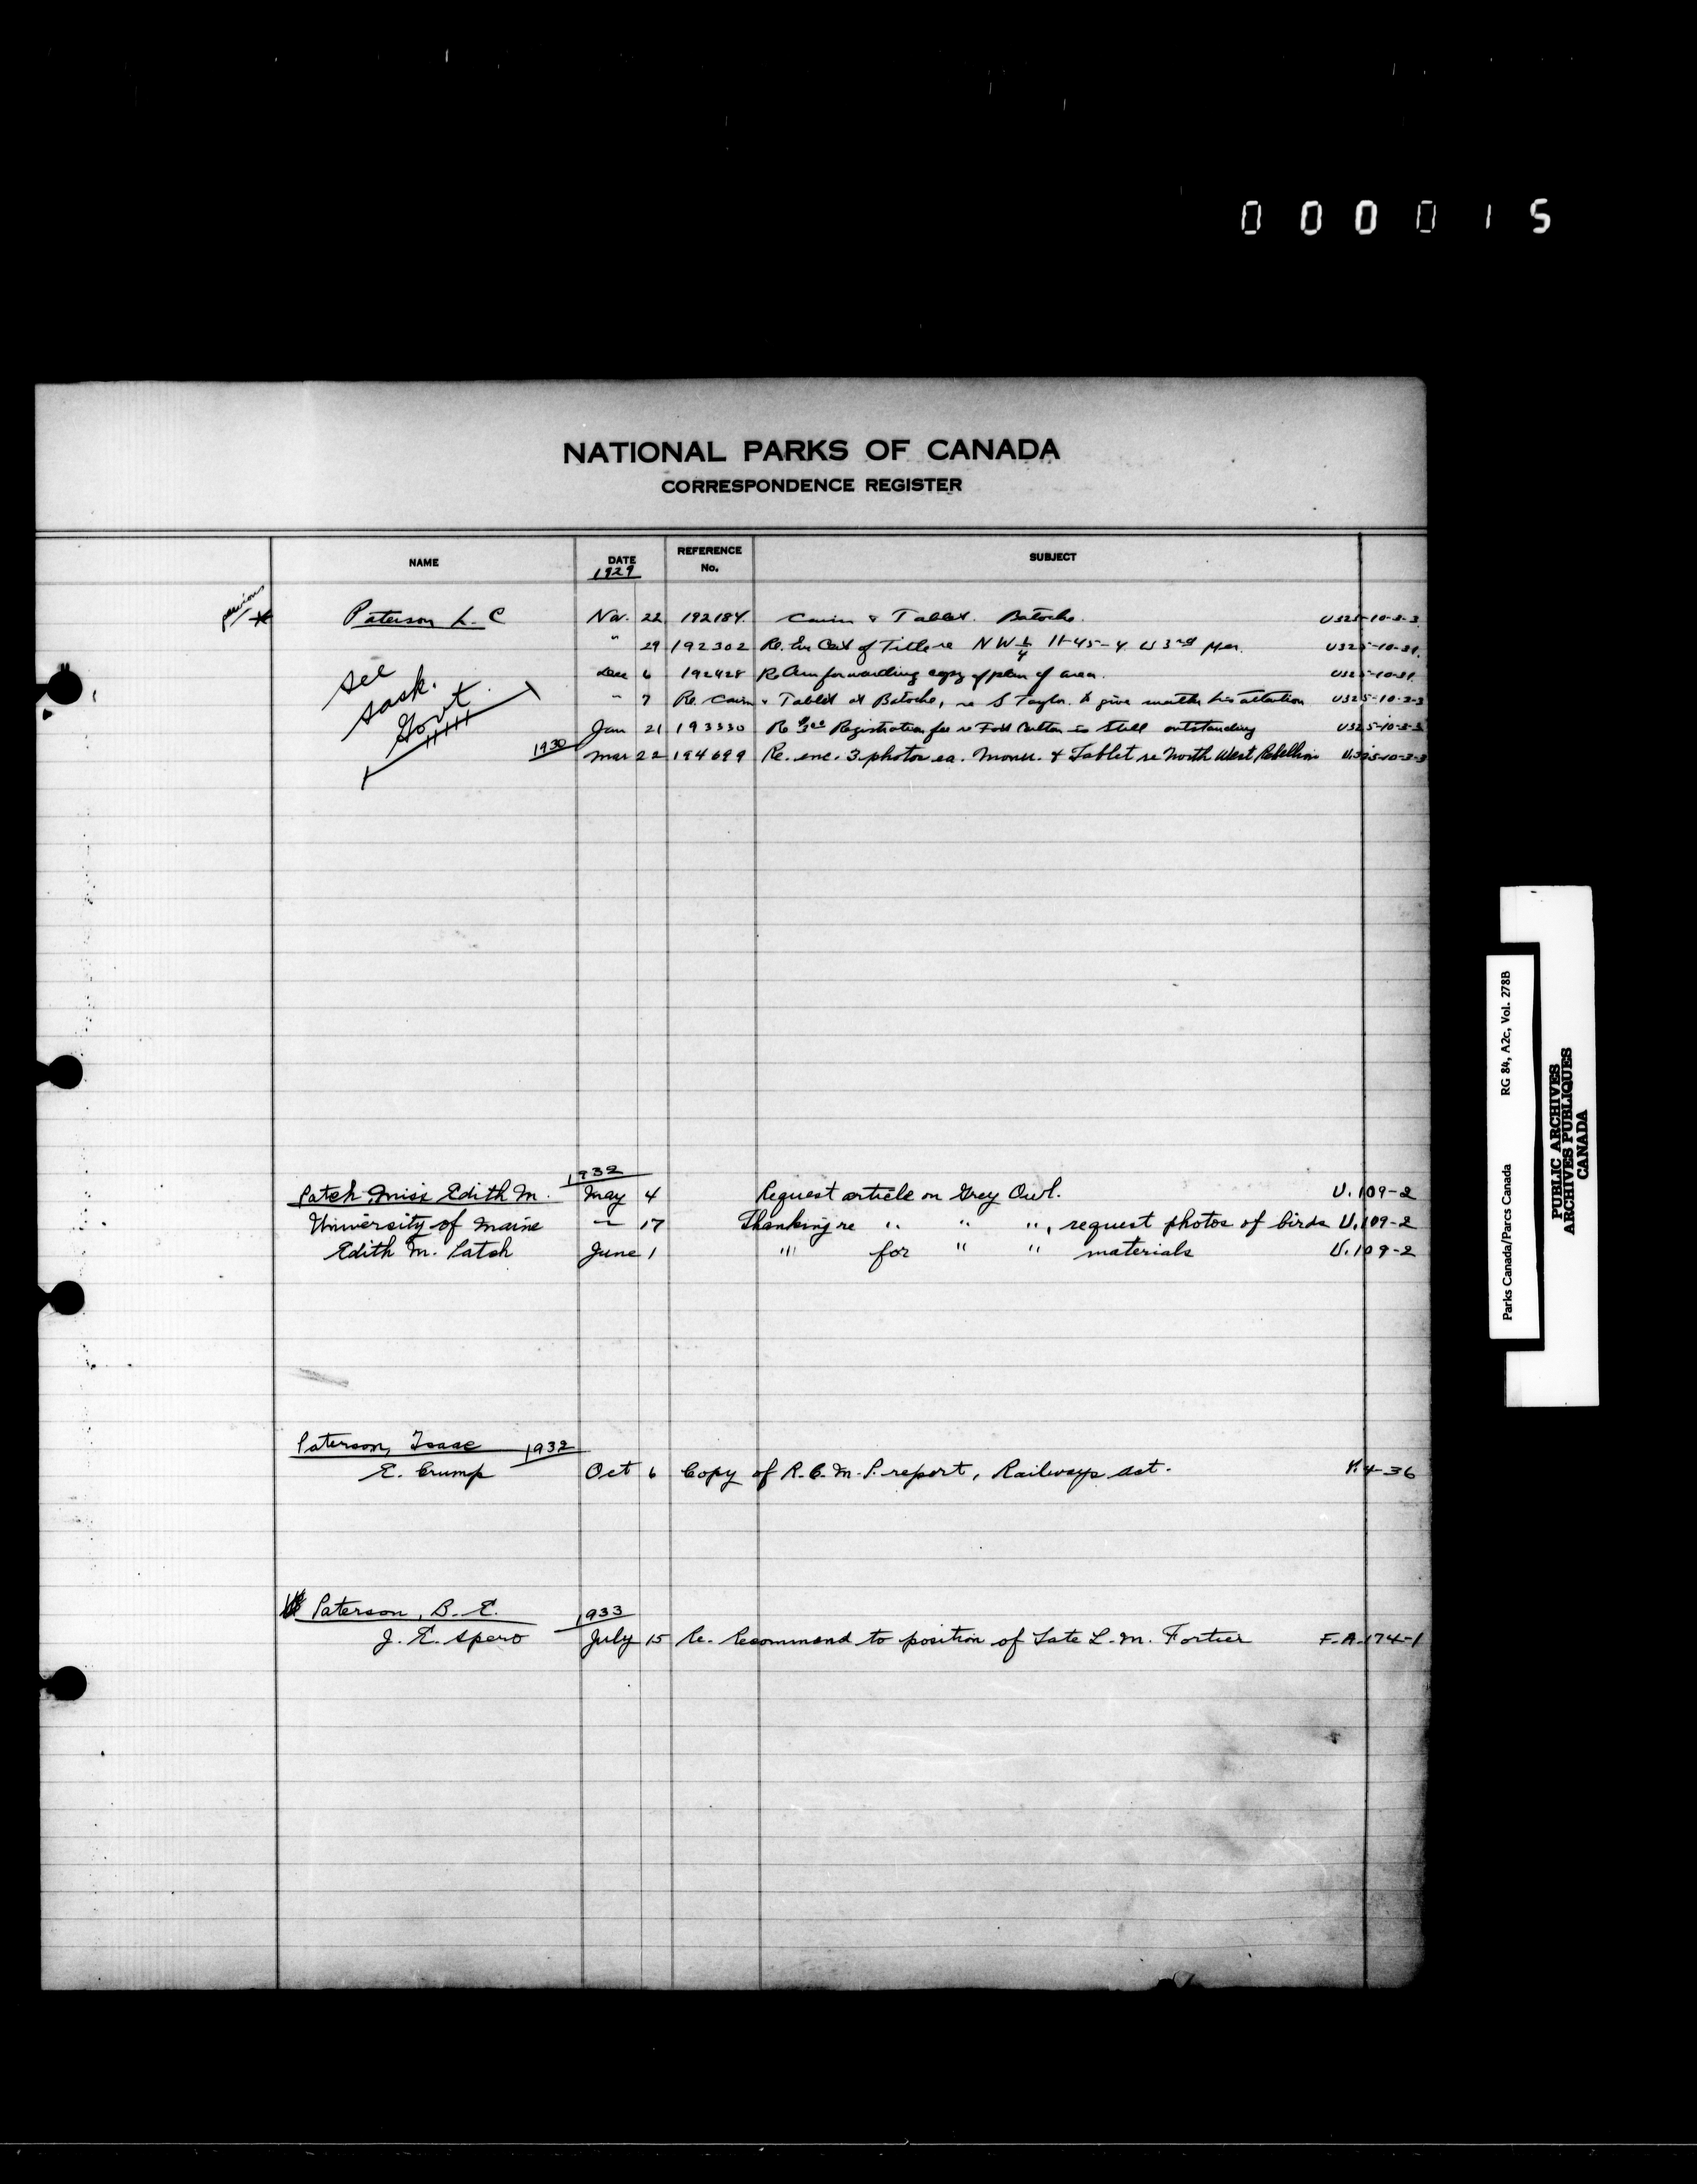 000015
NATIONAL PARKS OF CANADA
CORRESPONDENCE REGISTER
NAME DATE REFERENCE No. SUBJECT
1929
previous * Paterson L. C Nov. 22 192184. Cairn & Tablet. Batoche. U325-10-3-3.
" 29 192302 Re. Cert of Title re NW 1/4 11-45-4 W 3rd Mer. U325-10-31.
Dec 6 192428 forwarding copy of plan of area. U325-10-31.
" 7 Re. Cairn & Tablet at Batoche, re S Taylor. to give matter his attention U325-10-3-3
see
sask.
Govt.
Jan 21 193330 Re Registration fee re Fort Carlton is still outstanding U325-10-3-3
1930 Mar 22 194699 Re. enc. 3 photos ea. Monu. & Tablet re North West Rebellion U.325-10-3-3
1932
Patch Miss Edith M. May 4 Request article on Grey Owl. U.109-2
University of Maine " 17 Thanking re " " ", request photos of birds U.109-2
Edith M. Patch June 1 " for " " materials U.109-2
Paterson, Isaac 1932
E. Crump Oct 6 Copy of R.C.M.P. report, Railways act. 4-36
Paterson, B. E. 1933
J. E. Spero July 15 Re. Recommend to position of Late L. M. Fortier F.A.174-1
Parks Canada/Parcs Canada RG 84, A2c, Vol. 278B
PUBLIC ARCHIVES
ARCHIVES PUBLIQUES
CANADA